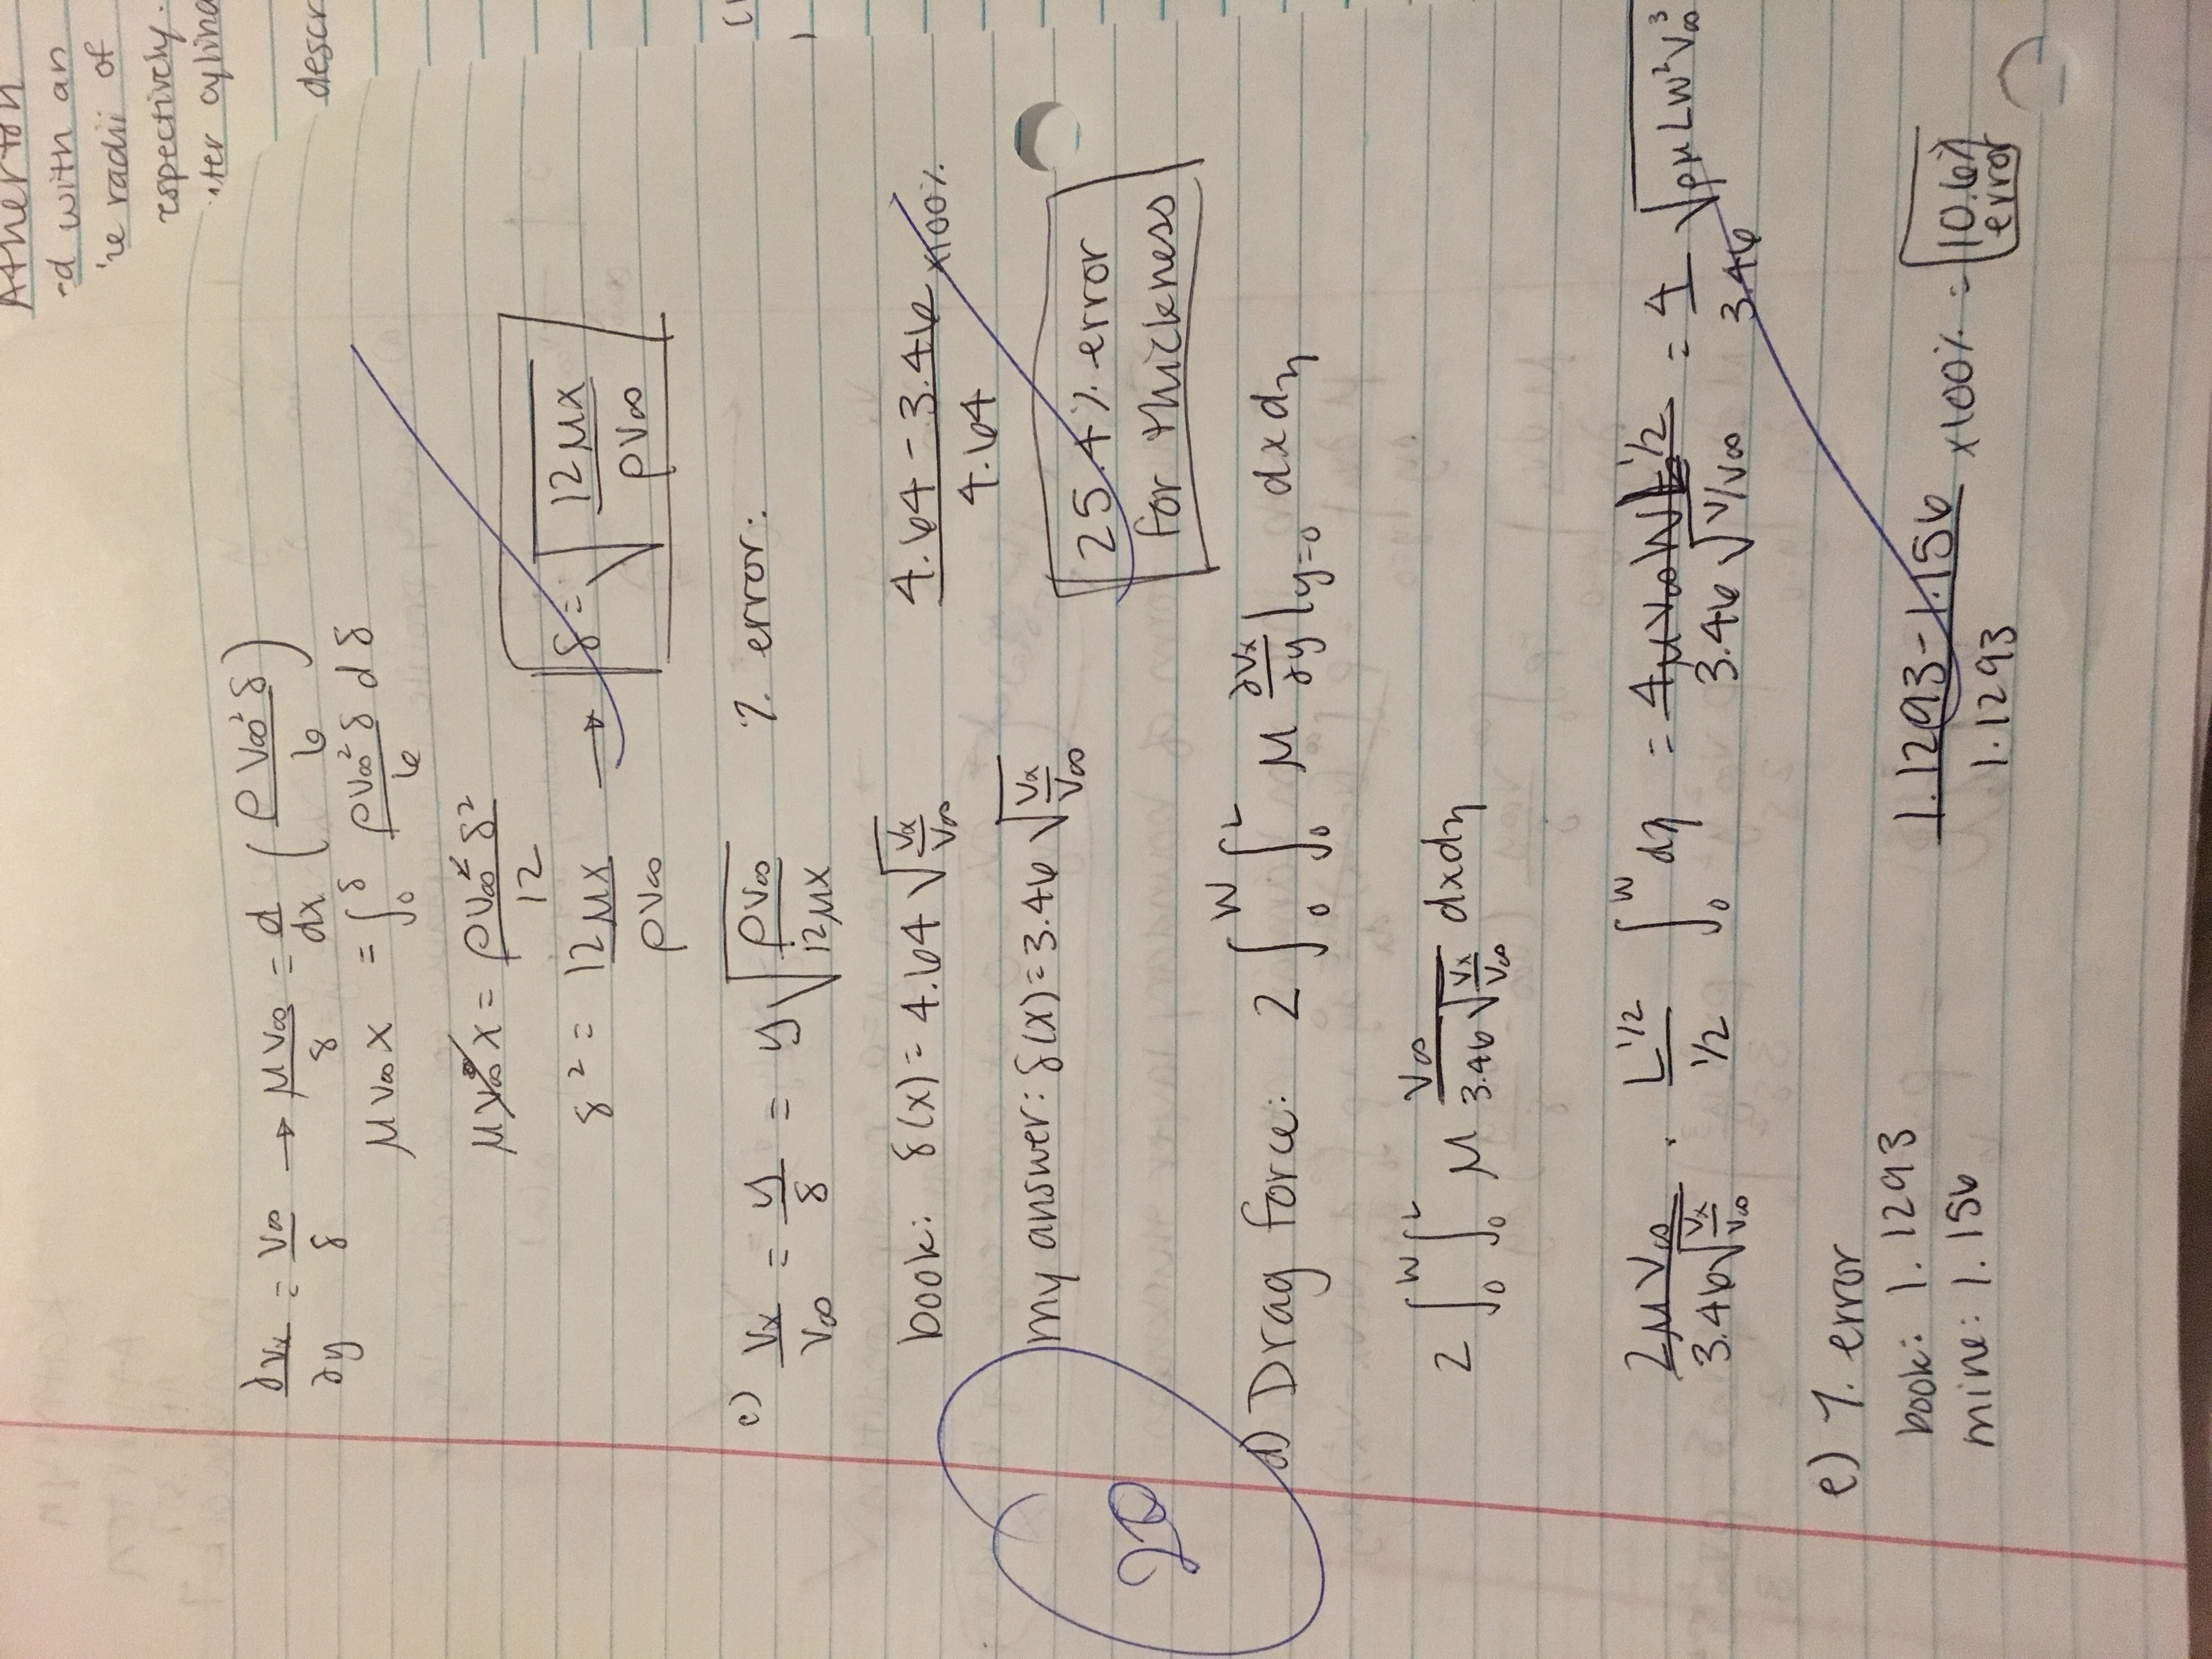 Atherton
-d with an
're radii of
respectively.
uter cylind
descr
∂vx/∂y = v∞/δ → μv∞/δ = d/dx (ρv∞²δ/6)
μv∞x = ∫₀^δ ρv∞²δ/6 dδ
μv∞x = ρv∞²δ²/12
δ² = 12μx/ρv∞ → δ = √(12μx/ρv∞)
c) vx/v∞ = y/δ = y√(ρv∞/12μx) % error:
book: δ(x) = 4.64 √(νx/v∞) (4.64 - 3.46)/4.64 x100%
my answer: δ(x) = 3.46 √(νx/v∞)
25.4% error
for thickness
20
d) Drag force: 2∫₀^W ∫₀^L μ ∂vx/∂y|y=0 dxdz
2∫₀^W ∫₀^L μ v∞/(3.46√(νx/v∞)) dxdz
2μv∞/(3.46√(νx/v∞)) · L^1/2/(1/2) ∫₀^W dz = 4μv∞WL^1/2/(3.46√(ν/v∞)) = 4/3.46 √(ρμLW²v∞³)
e) % error
book: 1.1293
mine: 1.156
(1.1293-1.156)/1.1293 x100% = 10.6% error